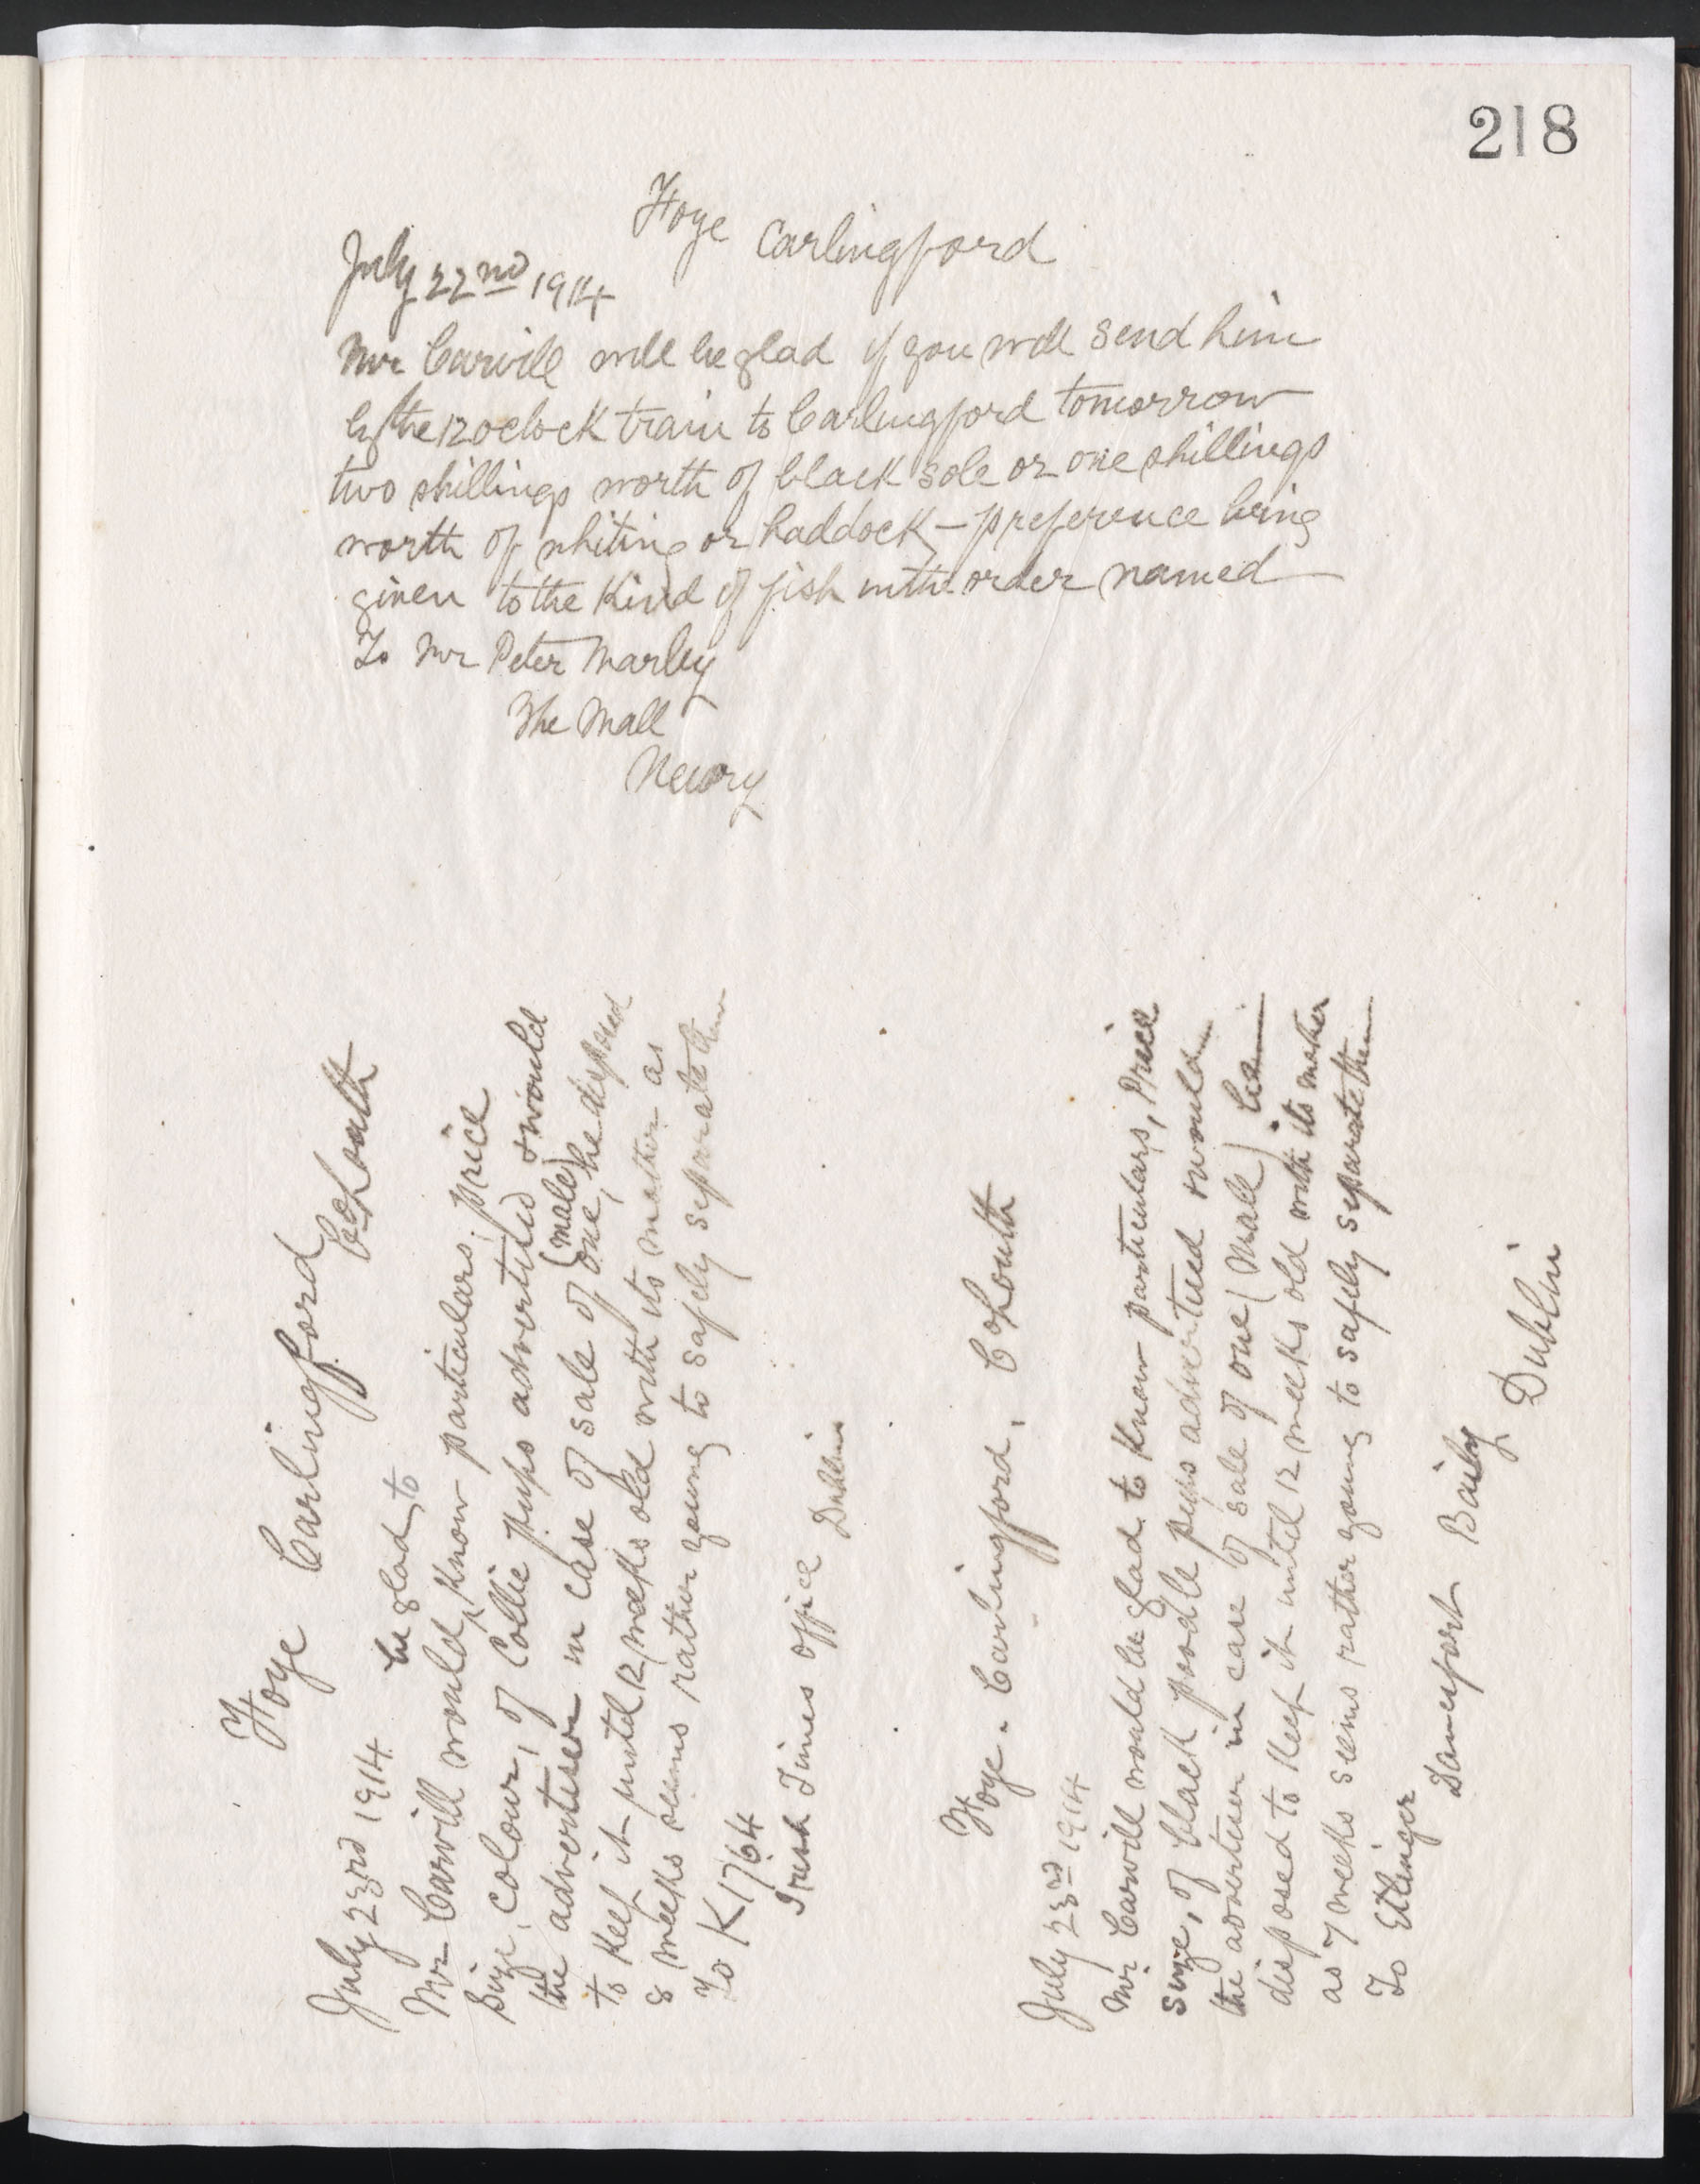 218
Foye Carlingford
July 22nd 1914
Mr Carvill will be glad if you will send him
by the 12 oclock train to Carlingford tomorrow
two shillings worth of black sole or one shillings
worth of whiting or haddock - preference being
given to the kind of fish in the order named
To Mr Peter Marley
The Mall
Newry
Foye Carlingford
Co Louth
July 23rd 1914
be glad to
Mr Carvill would ^ know particulars, price
Size, colour, of Collie pups advertised & would
the advertiser in case of sale of one, (male) be disposed
to keep it until 12 weeks old with its mother as
8 weeks seems rather young to safely separate them
To K 1764
Irish Times office
Dublin
Foye. Carlingford, Co Louth
July 23rd 1914
Mr Carvill would be glad to know particulars, Price
Size, of black poodle pups advertised & would
the advertiser in case of sale of one (male) be
disposed to keep it until 12 weeks old with its mother
as 7 weeks seems rather young to safely separate them
To Etlinger
Danesfort Baily
Dublin